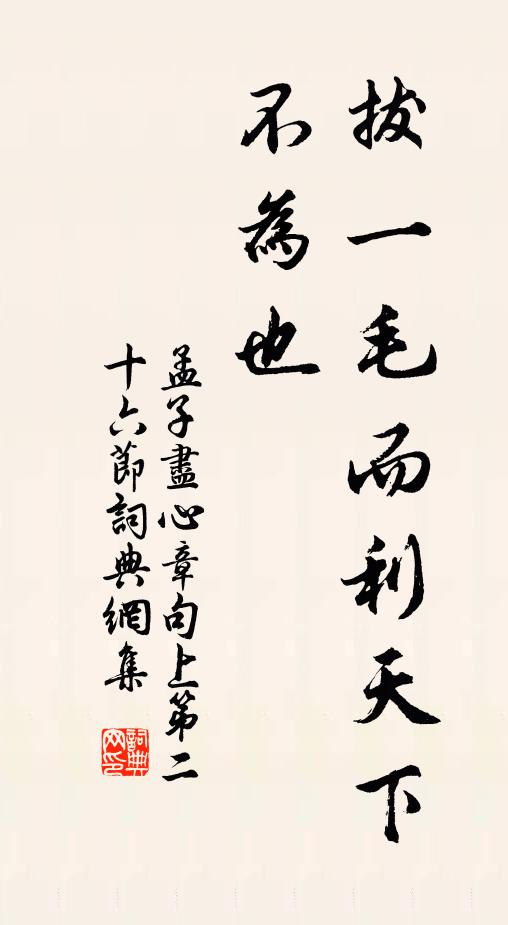 拔一毛而利天下
不為也
孟子盡心章句上第二
十六節詞典網集
詞典
网印